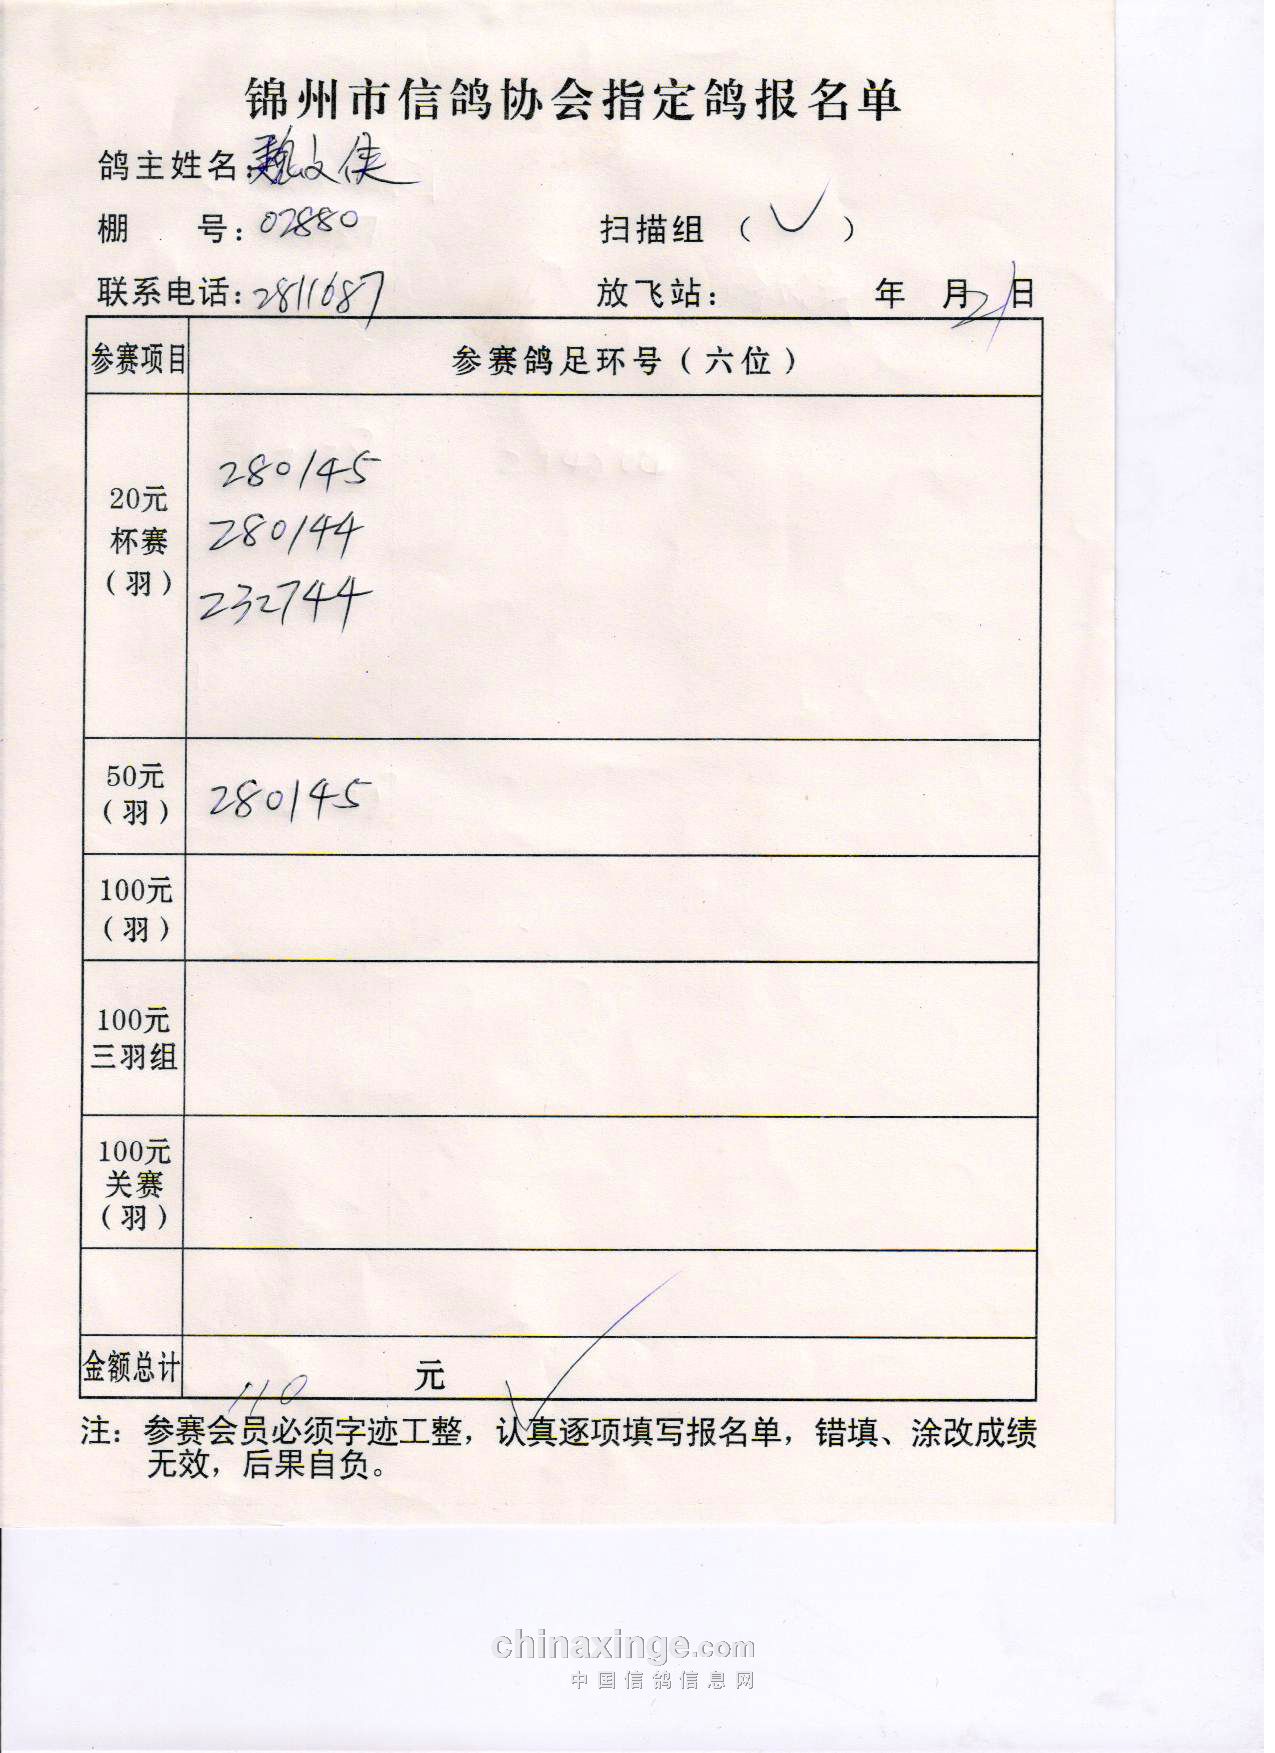 锦州市信鸽协会指定鸽报名单
鸽主姓名：魏文侠
棚 号：02880 扫描组（✓）
联系电话：2811687 放飞站： 年 月21日
参赛项目 参赛鸽足环号（六位）
20元
杯赛
（羽）
280145
280144
232744
50元
（羽）
280145
100元
（羽）
100元
三羽组
100元
关赛
（羽）
金额总计 110 元
注：参赛会员必须字迹工整，认真逐项填写报名单，错填、涂改成绩
无效，后果自负。
chinaxinge.com
中国信鸽信息网